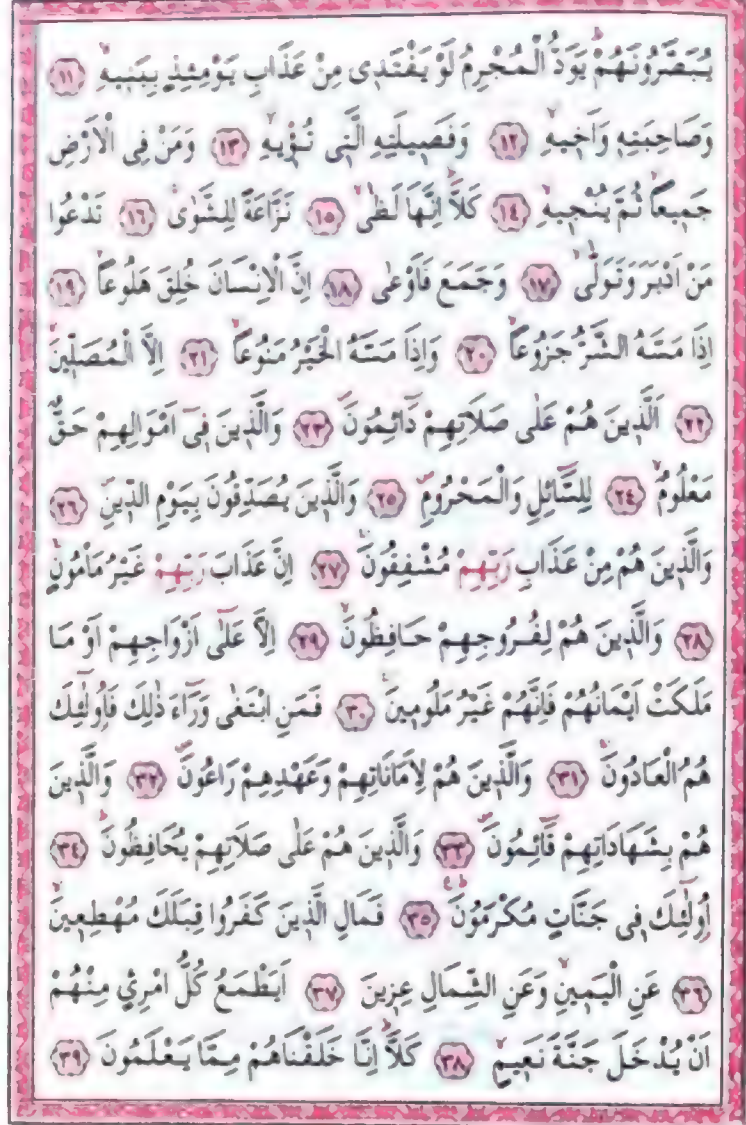 يُبَصَّرُونَهُمْۜ يَوَدُّ الْمُجْرِمُ لَوْ يَفْتَد۪ى مِنْ عَذَابِ يَوْمِئِذٍ بِبَن۪يهِۙ ﴿١١﴾
وَصَاحِبَتِه۪ وَاَخ۪يهِۙ ﴿١٢﴾ وَفَص۪يلَتِهِ الَّت۪ى تُـْٔو۪يهِۙ ﴿١٣﴾ وَمَنْ فِى الْاَرْضِ
جَم۪يعًاۙ ثُمَّ يُنْج۪يهِۙ ﴿١٤﴾ كَلَّاۜ اِنَّهَا لَظٰىۙ ﴿١٥﴾ نَزَّاعَةً لِلشَّوٰىۚ ﴿١٦﴾ تَدْعُوا
مَنْ اَدْبَرَ وَتَوَلّٰىۙ ﴿١٧﴾ وَجَمَعَ فَاَوْعٰى ﴿١٨﴾ اِنَّ الْاِنْسَانَ خُلِقَ هَلُوعًاۙ ﴿١٩﴾
اِذَا مَسَّهُ الشَّرُّ جَزُوعًاۙ ﴿٢٠﴾ وَاِذَا مَسَّهُ الْخَيْرُ مَنُوعًاۙ ﴿٢١﴾ اِلَّا الْمُصَلّ۪ينَۙ
﴿٢٢﴾ اَلَّذ۪ينَ هُمْ عَلٰى صَلَاتِهِمْ دَٓائِمُونَۖ ﴿٢٣﴾ وَالَّذ۪ينَ ف۪ٓى اَمْوَالِهِمْ حَقٌّ
مَعْلُومٌۙ ﴿٢٤﴾ لِلسَّٓائِلِ وَالْمَحْرُومِۖ ﴿٢٥﴾ وَالَّذ۪ينَ يُصَدِّقُونَ بِيَوْمِ الدّ۪ينِۖ ﴿٢٦﴾
وَالَّذ۪ينَ هُمْ مِنْ عَذَابِ رَبِّهِمْ مُشْفِقُونَۚ ﴿٢٧﴾ اِنَّ عَذَابَ رَبِّهِمْ غَيْرُ مَاْمُونٍۖ
﴿٢٨﴾ وَالَّذ۪ينَ هُمْ لِفُرُوجِهِمْ حَافِظُونَۙ ﴿٢٩﴾ اِلَّا عَلٰٓى اَزْوَاجِهِمْ اَوْ مَا
مَلَكَتْ اَيْمَانُهُمْ فَاِنَّهُمْ غَيْرُ مَلُوم۪ينَۚ ﴿٣٠﴾ فَمَنِ ابْتَغٰى وَرَٓاءَ ذٰلِكَ فَاُو۬لٰٓئِكَ
هُمُ الْعَادُونَۚ ﴿٣١﴾ وَالَّذ۪ينَ هُمْ لِاَمَانَاتِهِمْ وَعَهْدِهِمْ رَاعُونَۖ ﴿٣٢﴾ وَالَّذ۪ينَ
هُمْ بِشَهَادَاتِهِمْ قَٓائِمُونَۖ ﴿٣٣﴾ وَالَّذ۪ينَ هُمْ عَلٰى صَلَاتِهِمْ يُحَافِظُونَۜ ﴿٣٤﴾
اُو۬لٰٓئِكَ ف۪ى جَنَّاتٍ مُكْرَمُونَۜ ﴿٣٥﴾ فَمَالِ الَّذ۪ينَ كَفَرُوا قِبَلَكَ مُهْطِع۪ينَۙ
﴿٣٦﴾ عَنِ الْيَم۪ينِ وَعَنِ الشِّمَالِ عِز۪ينَ ﴿٣٧﴾ اَيَطْمَعُ كُلُّ امْرِئٍ مِنْهُمْ
اَنْ يُدْخَلَ جَنَّةَ نَع۪يمٍۙ ﴿٣٨﴾ كَلَّاۜ اِنَّا خَلَقْنَاهُمْ مِمَّا يَعْلَمُونَ ﴿٣٩﴾